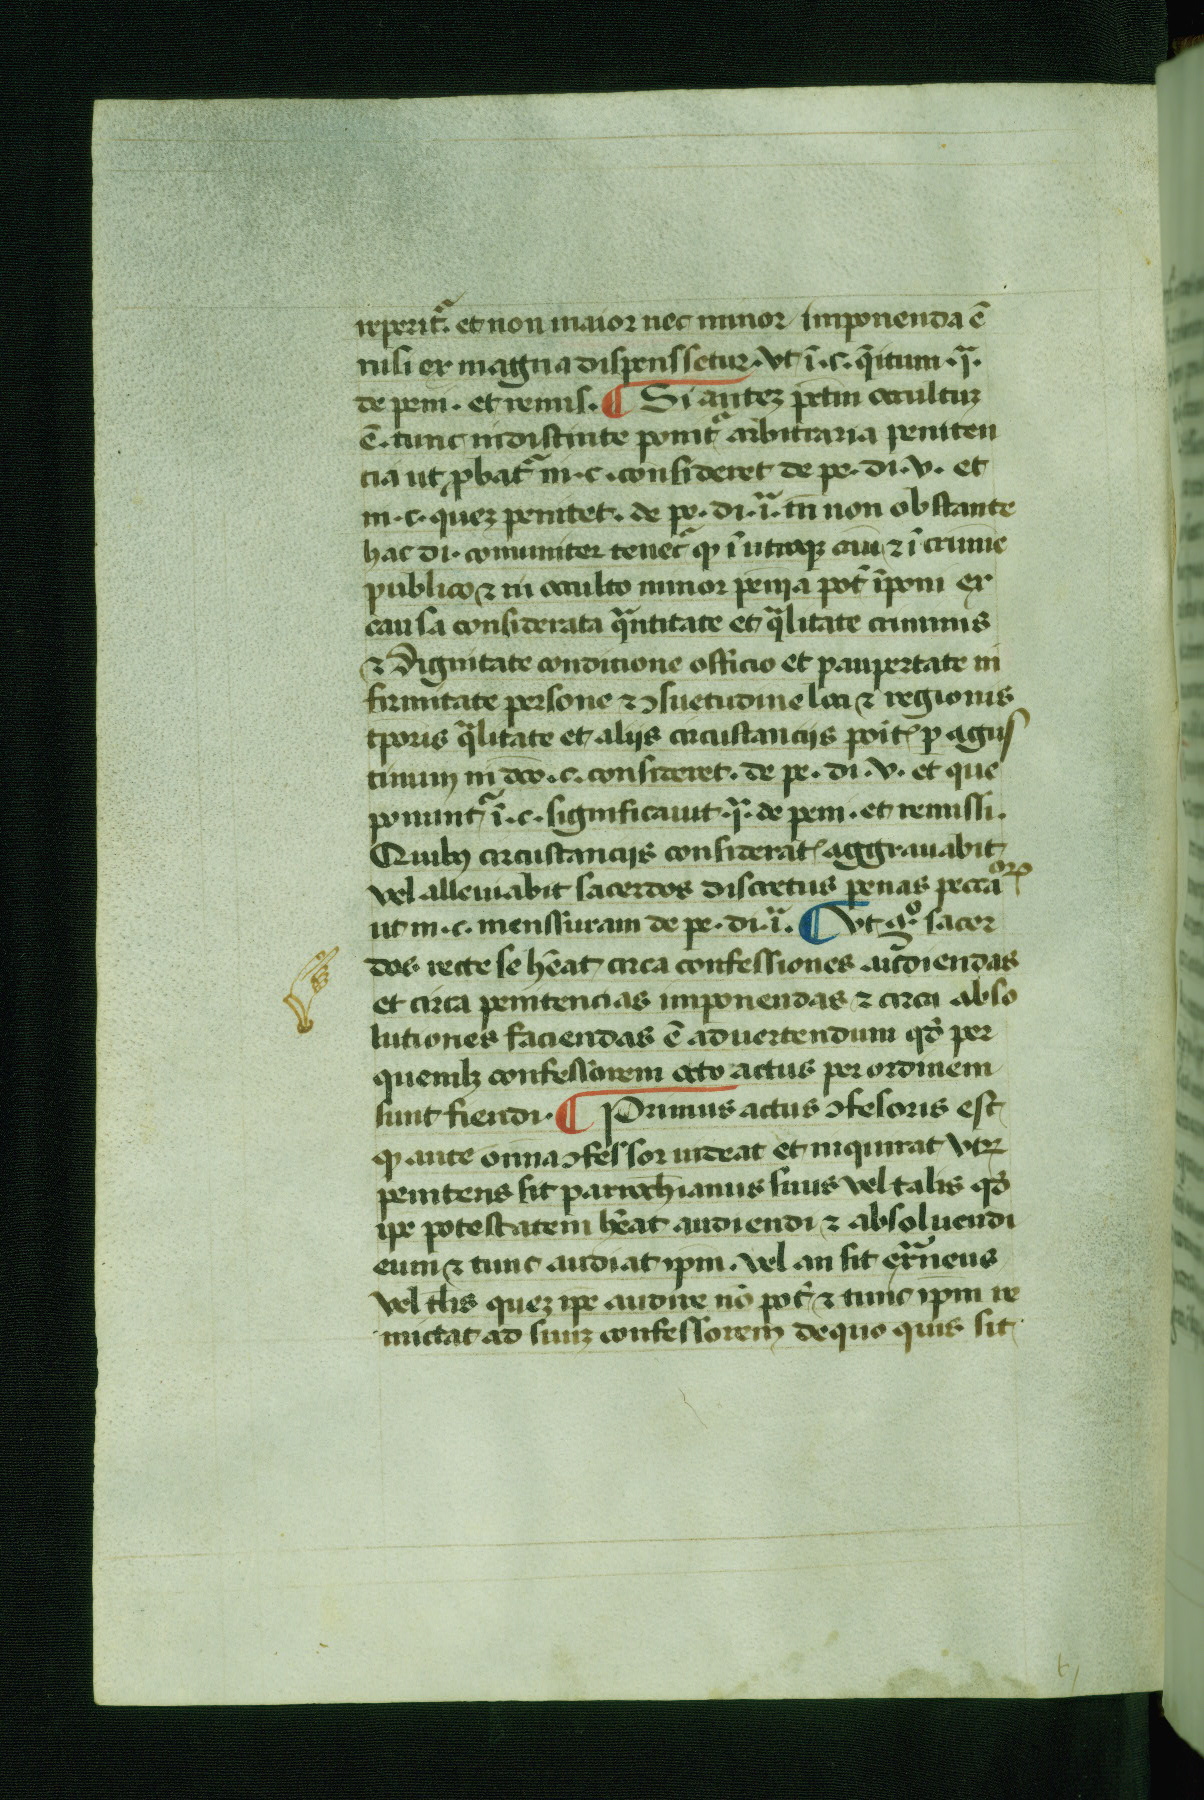 reperit᷑. et non maior nec minor imponenda ē
nisi ex magna dispenssetur. vt ī. c. q̄situm .j.ᵃ
de peni. et remis. ¶ Si autez pctm occultuz
ē. tunc indistincte ponit᷑ arbitraria peniten
cia ut ꝓbat᷑ in. c. consideret de pe. di. v. et
in. c. quez penitet. de pe. di. i.ᵃ tn̄ non obstante
hac di. comuniter tenet᷑ ꝙ ī utroqꝫ ⁊ ī crimīe
publico ⁊ in occulto minor penīa pot̄ īponi ex
causa considerata qᵃntitate et qᵃlitate criminis
⁊ dignitate condicione officio et paupertate in
firmitate persone ⁊ ꝯsuetudine loci ⁊ regionis
tꝑoris qᵃlitate et aliis circustanciis poīt᷑ ꝑ agus
tinum in dco. c. consideret. de pe. di. v. et que
ponunt᷑ ī. c. significauit .j.ᵃ de peni. et remissi.
Quibꝰ circustanciis considerat᷑ aggrauabit
vel alleuiabit sacerdos discretus penas pecca
toꝝ
ut in. c. menssuram de pe. di. i.ᵃ ¶ Vt g̊ sacer
dos recte se hēat circa confessiones audiendas
et circa penitencias imponendas ⁊ circa abso
lutiones faciendas ē aduertendum qd̓ per
quemlꝫ confessorem octo actus per ordinem
sunt fiendi. ¶ Primus actus ꝯfesoris est
ꝙ ante omnia ꝯfessor uideat et inquirat vtꝝ
penitens sit parrochianus suus vel talis qd̓
ip̄e potestatem hēat audiendi ⁊ absoluendi
eum ⁊ tunc audiat ip̄m. vel an sit ext̄neus
vel tl̄is quez ip̄e audire nō pot̄ ⁊ tunc ip̄m re
mictat ad suuz confessorem de quo quis sit